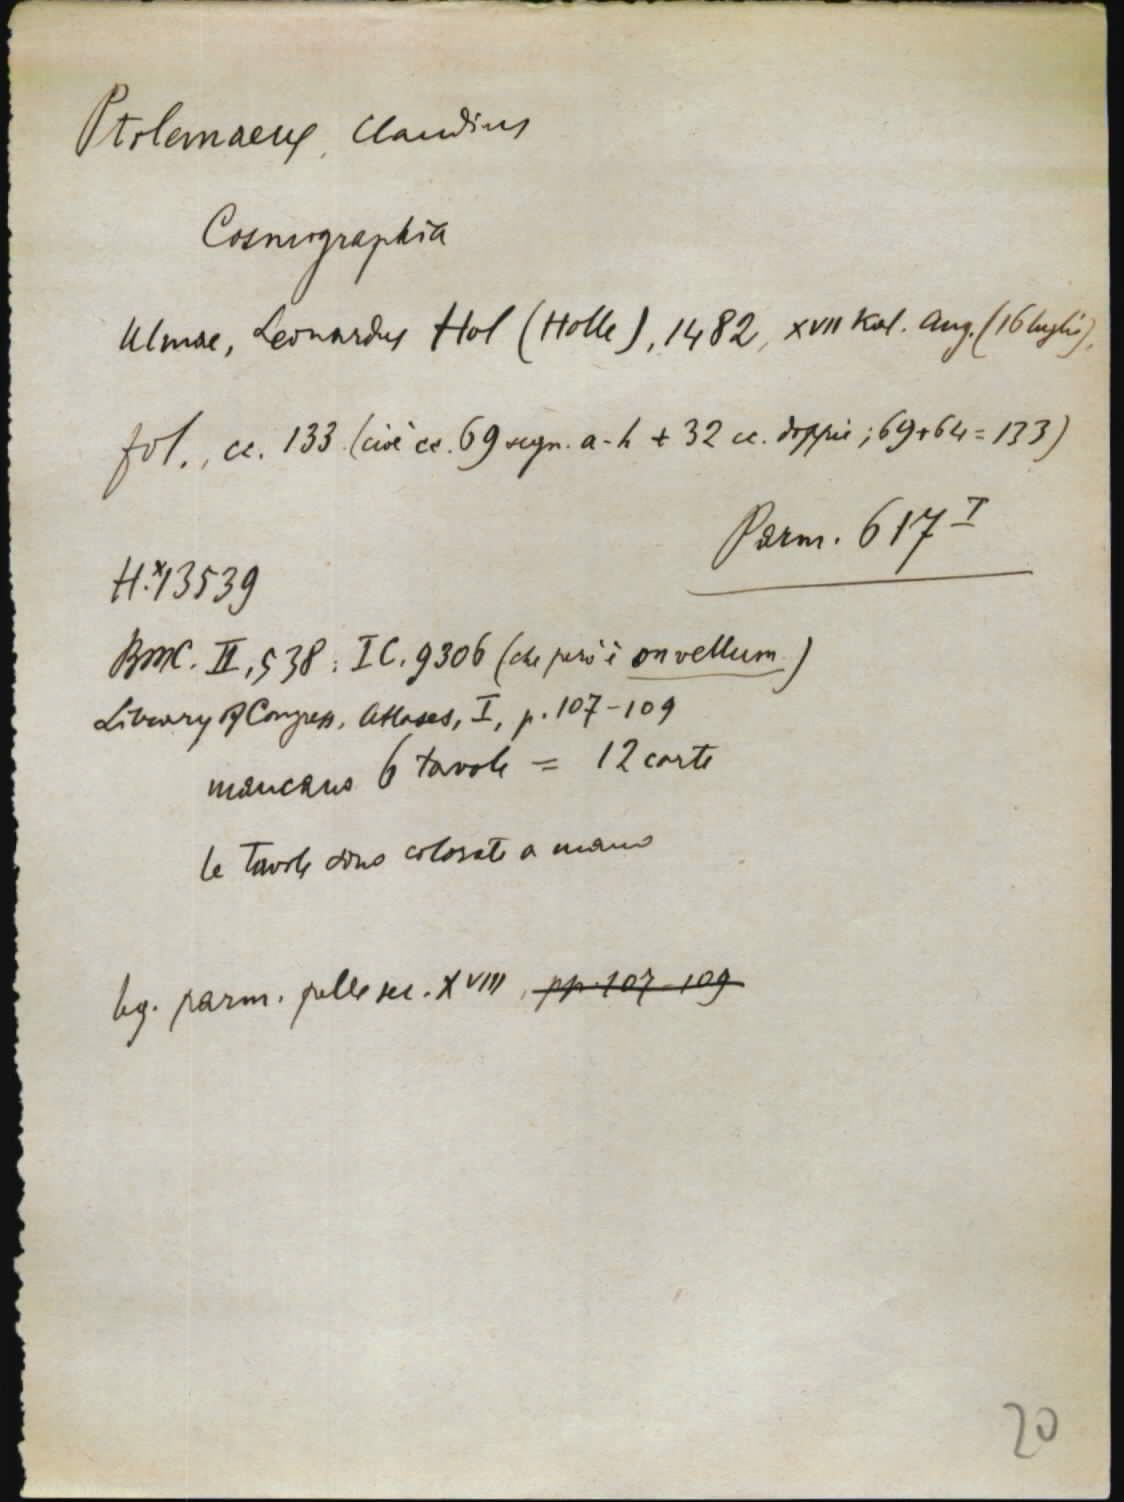 Ptolemaeus, Claudius
Cosmographia
Ulmae, Leonardus Hol (Holle), 1482, XVII Kal. Aug. (16 luglio).
fol., cc. 133 (cioè cc. 69 segn. a-h + 32 cc. doppie; 69+64=133)
Parm. 617 I
H.x13539
BMC. II, 538: IC. 9306 (che però è on vellum.)
Library of Congress, Atlases, I, p. 107-109
mancano 6 tavole = 12 carte
le tavole sono colorate a mano
leg. parm. pelle sec. XVIII, pp. 107-109
20